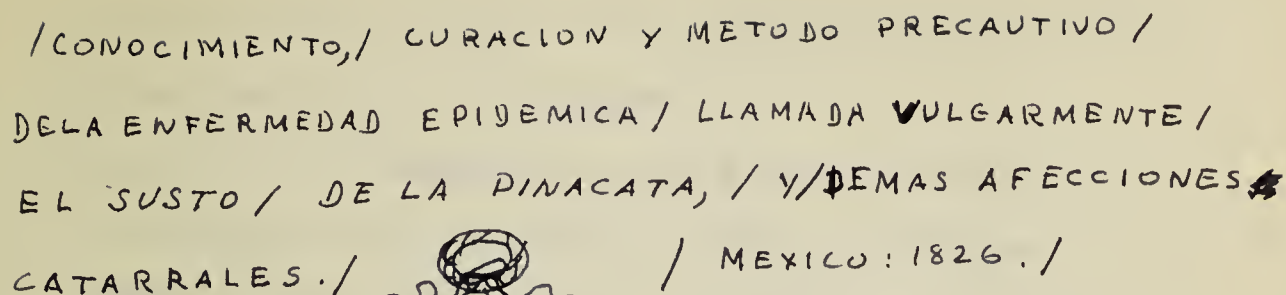 /CONOCIMIENTO,/ CURACION Y METODO PRECAUTIVO/
DELA ENFERMEDAD EPIDEMICA/ LLAMADA VULGARMENTE/
EL SUSTO/ DE LA PINACATA, / Y/DEMAS AFECCIONES
CATARRALES./ / MEXICO: 1826./